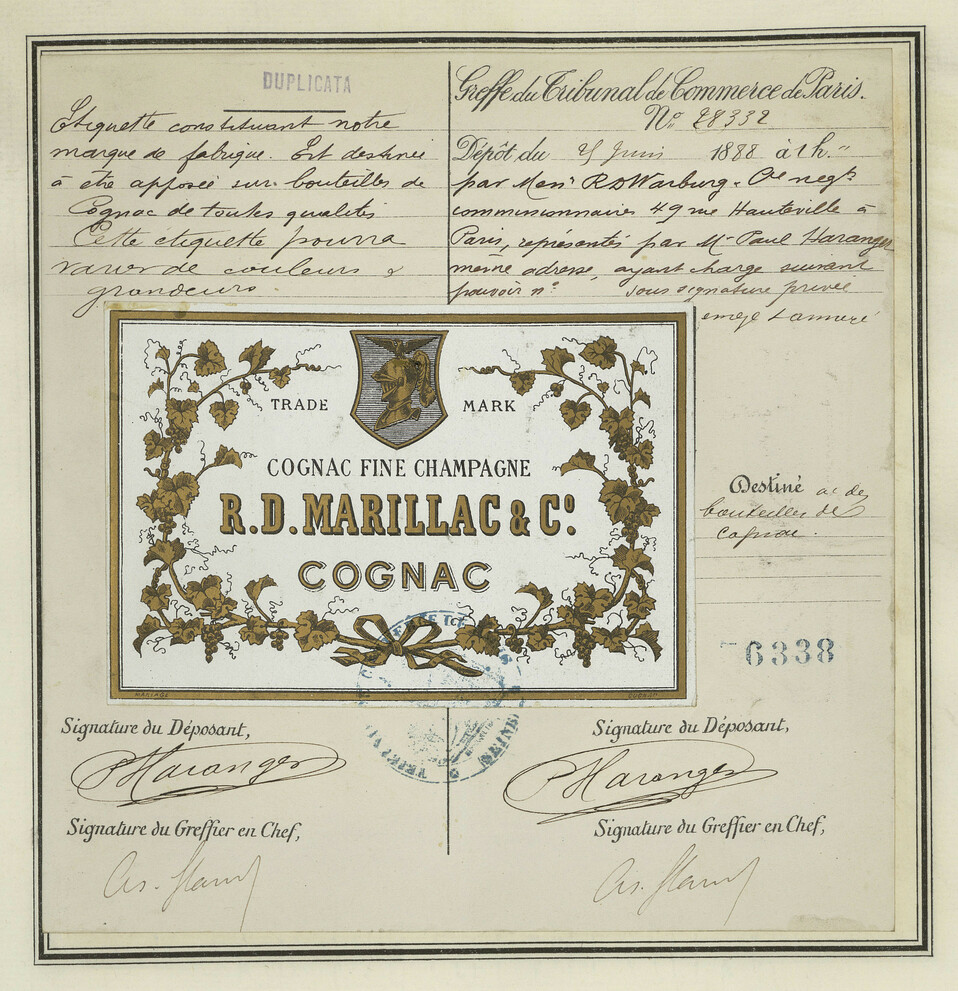 DUPLICATA
Etiquette constituant notre
marque de fabrique. Est destinée
à être apposée sur bouteilles de
Cognac de toutes qualités
Cette étiquette pourra
varier de couleurs &
grandeurs.
Greffe du Tribunal de Commerce de Paris.
No. 28332
Dépôt du Juin 1888 à 1 h.
par Mess RD Warburg. Cie negts
commissionnaires 49 rue Hauteville à
Paris, représentés par Mr Paul Haranger
même adresse, ayant charge suivant
pouvoir n° sous signature privée
TRADE MARK
COGNAC FINE CHAMPAGNE
R.D. MARILLAC & Co.
COGNAC
Destiné à des
bouteilles de
Cognac.
6338
Signature du Déposant,
PHaranger
Signature du Greffier en Chef,
Signature du Déposant,
PHaranger
Signature du Greffier en Chef,